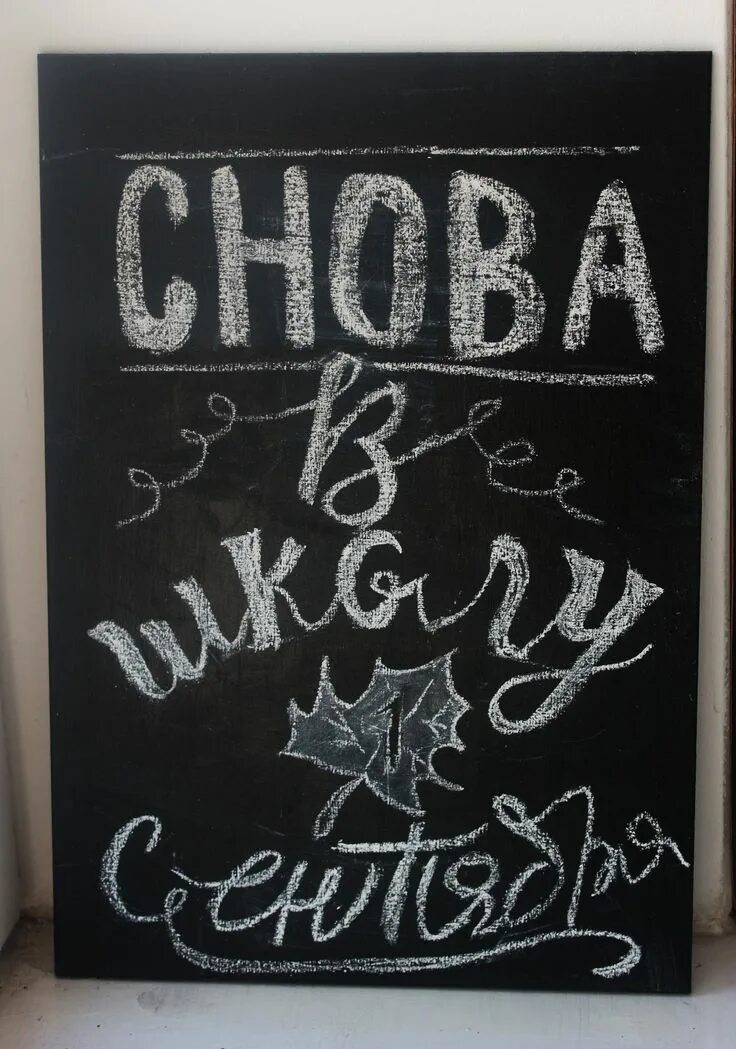 СНОВА
в
школу
1
Сентября